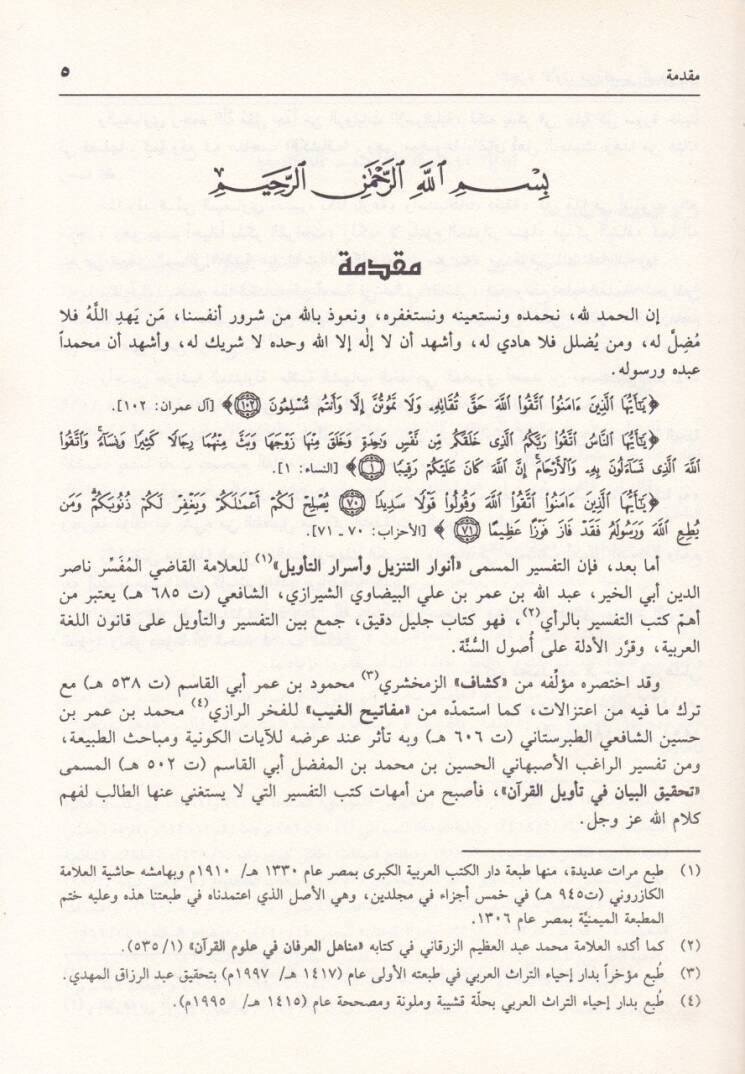 مقدمة ٥
بِسْمِ ٱللَّهِ ٱلرَّحْمَٰنِ ٱلرَّحِيمِ
مقدمة
إن الحمد لله، نحمده ونستعينه ونستغفره، ونعوذ بالله من شرور أنفسنا، مَن يَهدِ اللَّهُ فلا
مُضِلَّ له، ومن يُضلل فلا هادي له، وأشهد أن لا إلٰه إلا الله وحده لا شريك له، وأشهد أن محمداً
عبده ورسوله.
﴿يَٰٓأَيُّهَا ٱلَّذِينَ ءَامَنُوا۟ ٱتَّقُوا۟ ٱللَّهَ حَقَّ تُقَاتِهِۦ وَلَا تَمُوتُنَّ إِلَّا وَأَنتُم مُّسْلِمُونَ ١٠٢﴾ [آل عمران: ١٠٢].
﴿يَٰٓأَيُّهَا ٱلنَّاسُ ٱتَّقُوا۟ رَبَّكُمُ ٱلَّذِى خَلَقَكُم مِّن نَّفْسٍ وَٰحِدَةٍ وَخَلَقَ مِنْهَا زَوْجَهَا وَبَثَّ مِنْهُمَا رِجَالًا كَثِيرًا وَنِسَآءً ۚ وَٱتَّقُوا۟
ٱللَّهَ ٱلَّذِى تَسَآءَلُونَ بِهِۦ وَٱلْأَرْحَامَ ۚ إِنَّ ٱللَّهَ كَانَ عَلَيْكُمْ رَقِيبًا ١﴾ [النساء: ١].
﴿يَٰٓأَيُّهَا ٱلَّذِينَ ءَامَنُوا۟ ٱتَّقُوا۟ ٱللَّهَ وَقُولُوا۟ قَوْلًا سَدِيدًا ٧٠ يُصْلِحْ لَكُمْ أَعْمَٰلَكُمْ وَيَغْفِرْ لَكُمْ ذُنُوبَكُمْ ۗ وَمَن
يُطِعِ ٱللَّهَ وَرَسُولَهُۥ فَقَدْ فَازَ فَوْزًا عَظِيمًا ٧١﴾ [الأحزاب: ٧٠ ـ ٧١].
أما بعد، فإن التفسير المسمى «أنوار التنزيل وأسرار التأويل»(١) للعلامة القاضي المُفَسِّر ناصر
الدين أبي الخير، عبد الله بن عمر بن علي البيضاوي الشيرازي، الشافعي (ت ٦٨٥ هـ) يعتبر من
أهمّ كتب التفسير بالرأي(٢)، فهو كتاب جليل دقيق، جمع بين التفسير والتأويل على قانون اللغة
العربية، وقرَّر الأدلة على أُصول السُّنَّة.
وقد اختصره مؤلِّفه من «كشاف» الزمخشري(٣) محمود بن عمر أبي القاسم (ت ٥٣٨ هـ) مع
ترك ما فيه من اعتزالات، كما استمدّه من «مفاتيح الغيب» للفخر الرازي(٤) محمد بن عمر بن
حسين الشافعي الطبرستاني (ت ٦٠٦ هـ) وبه تأثر عند عرضه للآيات الكونية ومباحث الطبيعة،
ومن تفسير الراغب الأصبهاني الحسين بن محمد بن المفضل أبي القاسم (ت ٥٠٢ هـ) المسمى
«تحقيق البيان في تأويل القرآن»، فأصبح من أمهات كتب التفسير التي لا يستغني عنها الطالب لفهم
كلام الله عز وجل.
(١) طبع مرات عديدة، منها طبعة دار الكتب العربية الكبرى بمصر عام ١٣٣٠ هـ/ ١٩١٠م وبهامشه حاشية العلامة
الكازروني (ت٩٤٥ هـ) في خمس أجزاء في مجلدين، وهي الأصل الذي اعتمدناه في طبعتنا هذه وعليه ختم
المطبعة الميمنيَّة بمصر عام ١٣٠٦.
(٢) كما أكده العلامة محمد عبد العظيم الزرقاني في كتابه «مناهل العرفان في علوم القرآن» (١/ ٥٣٥).
(٣) طُبع مؤخراً بدار إحياء التراث العربي في طبعته الأولى عام (١٤١٧ هـ/ ١٩٩٧م) بتحقيق عبد الرزاق المهدي.
(٤) طُبع بدار إحياء التراث العربي بحلّة قشيبة وملونة ومصححة عام (١٤١٥ هـ/ ١٩٩٥م).